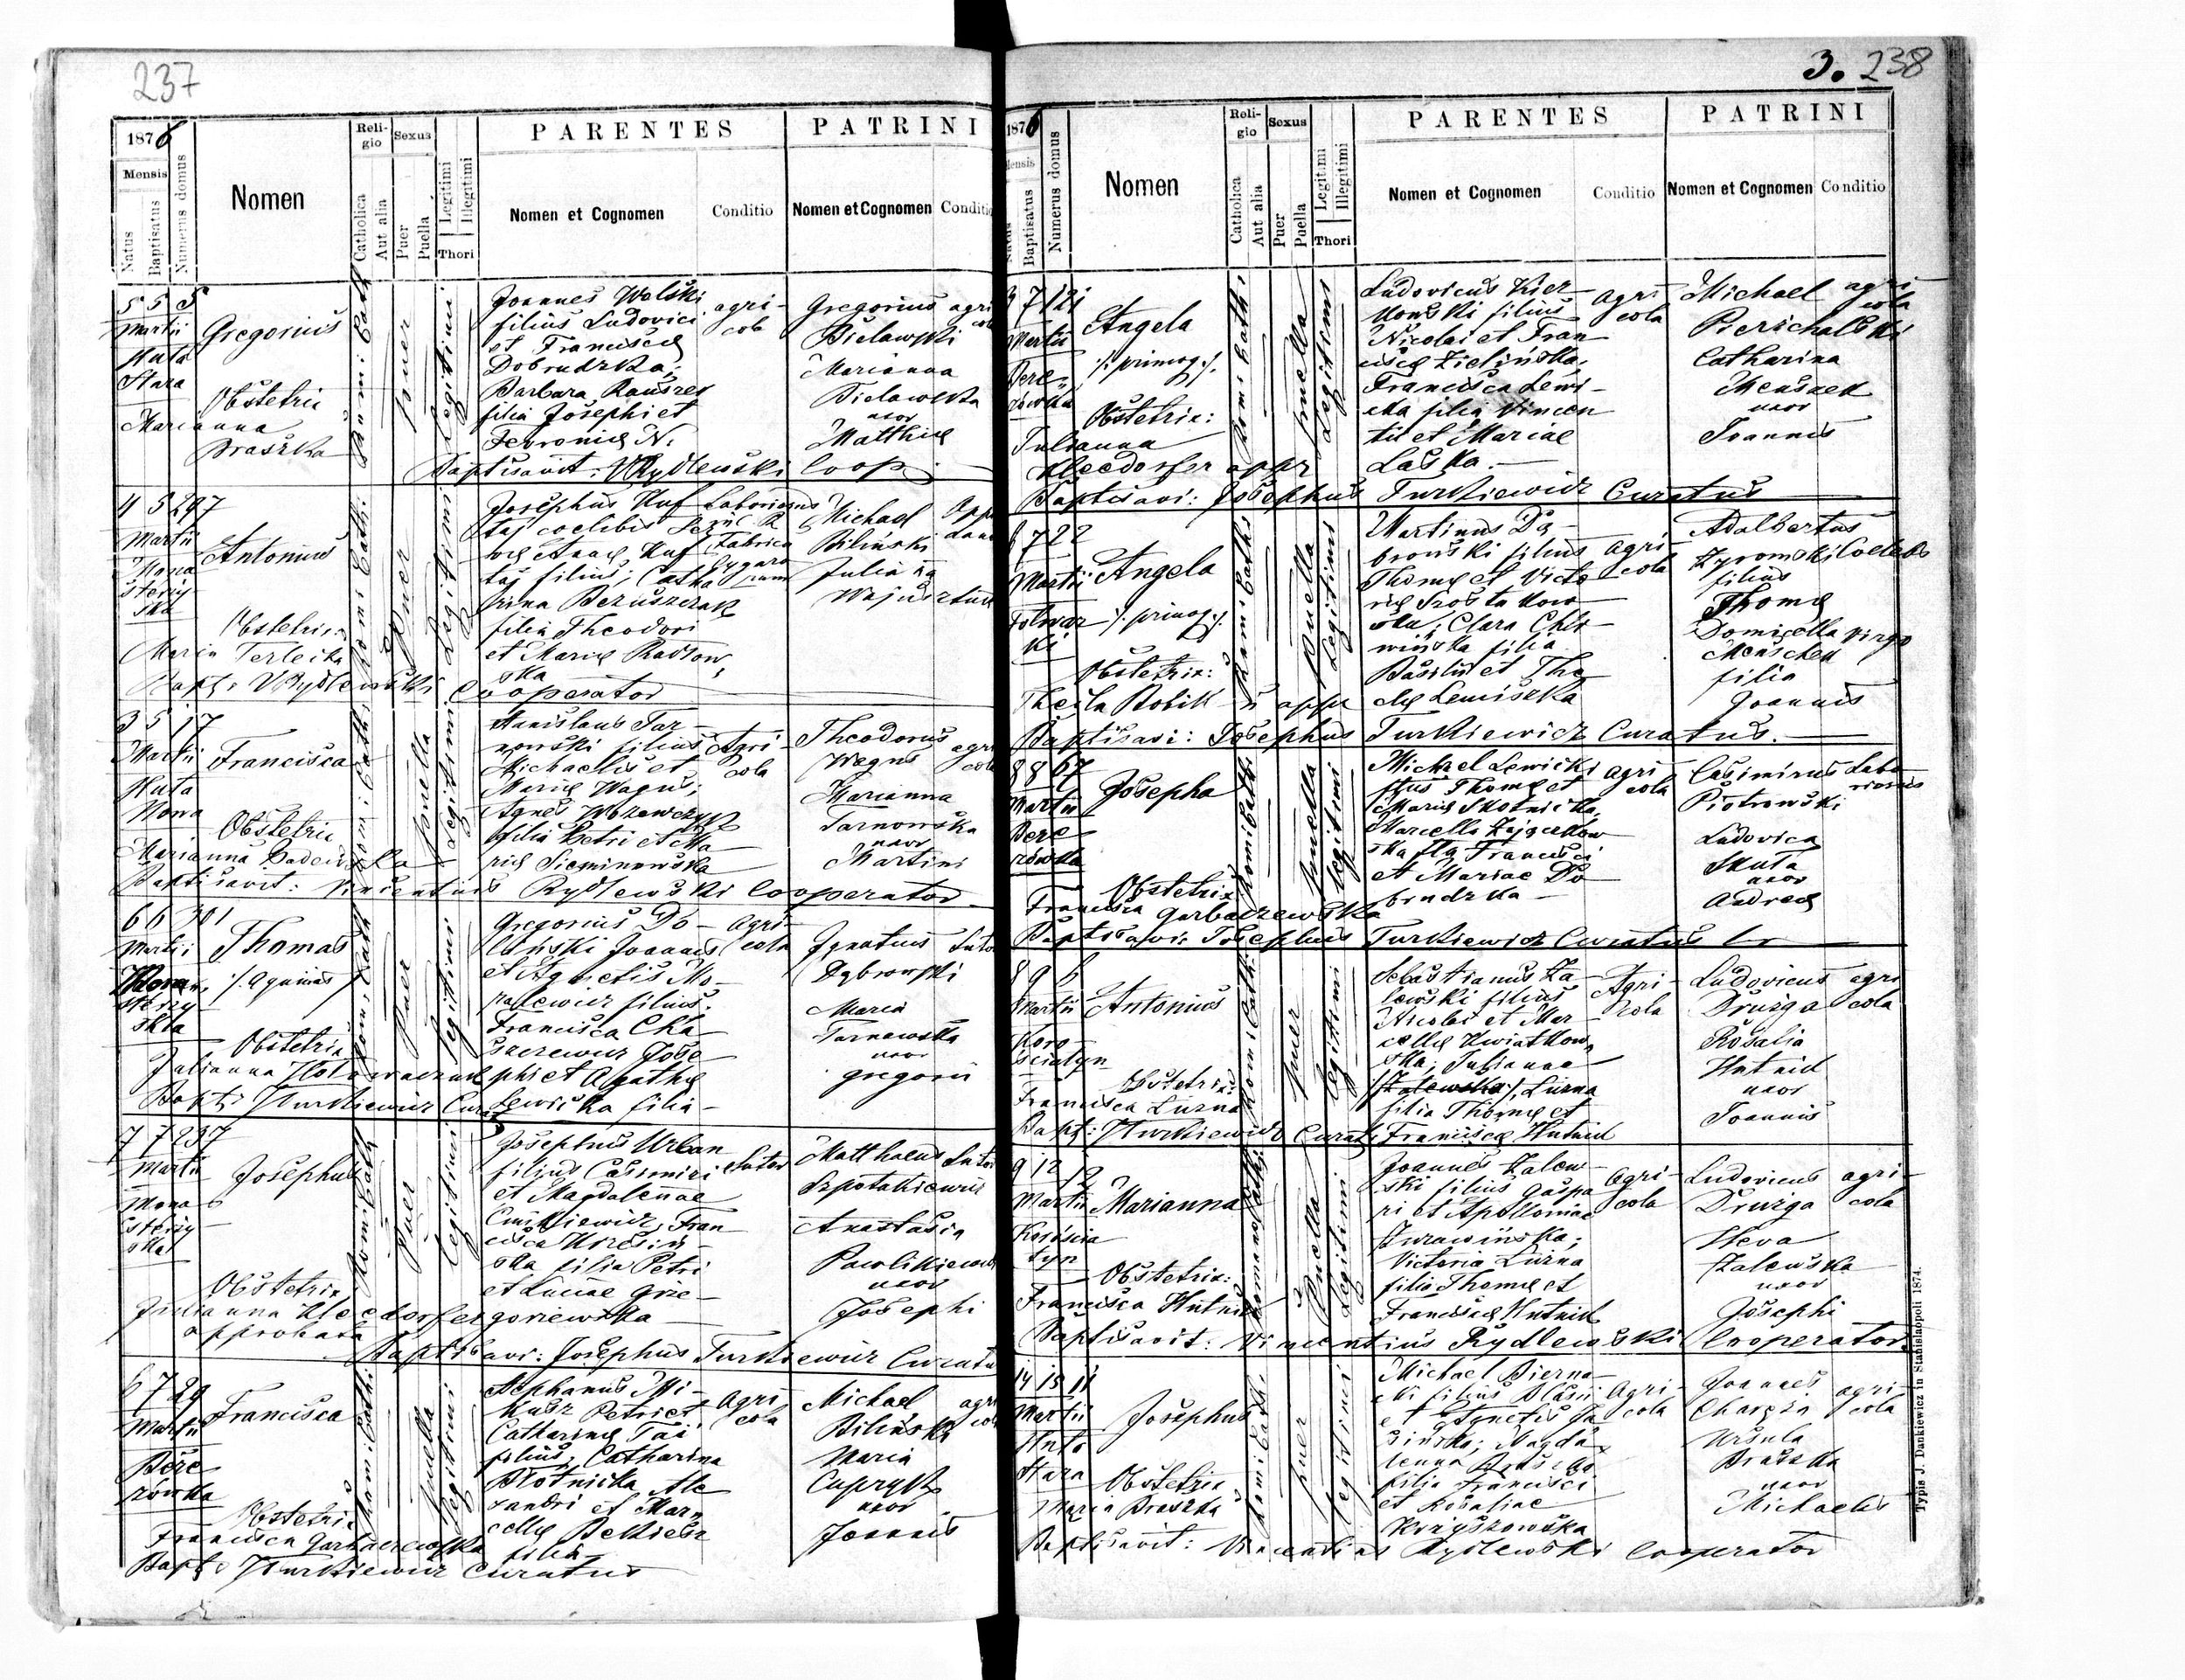 237
1876
Mensis
Natus
Baptisatus
Numerus domus
Nomen
Religio
Catholica
Aut alia
Sexus
Puer
Puella
Legitimi
Illegitimi
Thori
PARENTES
Nomen et Cognomen
Conditio
PATRINI
Nomen et Cognomen
Conditio
5 5 5
Martii
Huta
Stara
Gregorius
Obstetrix
Marianna
Draszka
puer
Legitimi
Joannes Wolski
filius Ludovici
et Francisca
Dobrudzka;
Barbara
filia Josephi et
N.
agri-
cola
Gregorius
Bielawski
Marianna
Bielawska
uxor
Matthiae
agri
cola
Baptisavit: V. Rydlewski Coop.
4 5 297
Martii
Mona
sterzy
ska
Antonius
Obstetrix
Maria Terlecka
Puer
Legitimi
Josephus Huf
taj filius; Catha
rina Bezuszczak
filia Theodori
et Mariae Radlow
ska
Laboriosus
Fabrica
Michael
Biliński
Julianna
Bapt: V. Rydlewski Cooperator
3 5 17
Martii
Huta
Nowa
Francisca
Obstetrix
Marianna
Puella
Legitimi
Stanislaus Tar-
nowski filius
Michaelis et
Mariae Wagus;
Agnes
filia Petri et Ma
riae Sieminowska
Agri-
cola
Theodorus
Wagus
Marianna
Tarnowska
uxor
Martini
agri
cola
Baptisavit: Vincentius Rydlewski Cooperator
6 6 301
Martii
Mona
sterzy
ska
Thomas
/. Aquinas /
Obstetrix
Julianna
Puer
Legitimi
Gregorius Do-
liński Joannis
et Agnetis Mo-
ralewicz filius;
Francisca Cha
szczewicz Jose
phi et Agathae
Lewicka filia
agri
cola
Ignatius
Dąbrowski
Maria
Tarnowska
uxor
Gregorii
Sutor
Bapt: J. Turkiewicz Curat
7 7 237
Martii
Mona
sterzy
ska
Josephus
Obstetrix
Julianna Kleedorfer
approbata
Puer
Legitimi
Josephus Urban
filius Casimiri
et Magdalenae
Fran
cisca
ska filia Petri
et Luciae Grze-
gorzewska
Sutor
Matthaeus
Szpotakiewicz
Anastasia
uxor
Josephi
Sutor
Baptisavi: Josephus Turkiewicz Curatus
6 7 29
Martii
Bere
zówka
Francisca
Obstetrix
Francisca Garbaczewska
puella
Legitimi
Stephanus Mi-
Petri et
Catharinae
filius; Catharina
Płotnicka Ale
xandri et Mar
filia
Agri
cola
Michael
Biliński
Maria
Cupryk
uxor
Joannis
agri
cola
Bapt: J. Turkiewicz Curatus
3. 238
1876
Mensis
Natus
Baptisatus
Numerus domus
Nomen
Religio
Catholica
Aut alia
Sexus
Puer
Puella
Legitimi
Illegitimi
Thori
PARENTES
Nomen et Cognomen
Conditio
PATRINI
Nomen et Cognomen
Conditio
3 7 121
Martii
Bere
zówka
Angela
/: primog :/.
Obstetrix:
Julianna
Kleedorfer appr
puella
Legitimi
Ludovicus
filius
Nicolai et Fran
ciscae Zielińska,
Francisca Lewi-
cka filia Vincen
tii et Mariae
Laska.
Agri
cola
Michael
Pierichalski
Catharina
Menszek
uxor
Joannis
agri
cola
Baptisavi: Josephus Turkiewicz Curatus
6 7 22
Martii
Folwar
ki
Angela
/. primog :/.
Obstetrix:
Thecla Bobik appr
puella
Legitimi
Martinus Dą-
browski filius
Thomae et Victo
riae
ska; Clara
filia
Basilii et The
clae Lemiszka
agri
cola
Adalbertus
Zyromski Coelebs
filius
Thomae
Domicella virgo
Menschek
filia
Joannis
Baptisavi: Josephus Turkiewicz Curatus.
8 8 67
Martii
Bere
zówka
Josepha
Obstetrix
Francisca Garbaczewska
puella
Legitimi
Michael Lewicki
flius Thomae et
Mariae Skotnicka,
Marcella Zajączkow
ska fla Francisci
et Mariae Do
brudzka
agri
cola
Casimirus
Piotrowski
Ludovica
Skuta
uxor
Andreae
Labo
riosus
Baptisavi: Josephus Turkiewicz Curatus
8 9 6
Martii
Koro
sciatyn
Antonius
Obstetrix
Francisca Luzna
puer
Legitimi
Sebastianus Za-
lewski filius
Nicolai et Mar-
cellae Kwiatkow
ska; Julianna
/Zalewska/, Luzna
filia Thomae et
Franciscae Hutnik
Agri
cola
Ludovicus
Druzga
Rosalia
Hutnik
uxor
Joannis
agri
cola
Bapt: J. Turkiewicz Curat
9 12 12
Martii
Korościa
tyn
Marianna
Obstetrix:
Francisca Hutnik
Puella
Legitimi
Joannes Zalew-
ski filius Gaspa
ri et Apolloniae
Żurawińska;
Victoria Luzna
filia Thomae et
Franciscae Hutnik
agri-
cola
Ludovicus
Druzga
Heva
Zalewska
uxor
Josephi
agri-
cola
Baptisavit: Vincentius Rydlewski Cooperator
14 15 11
Martii
Huta
Stara
Josephus
Obstetrix
Maria Draszka
puer
Legitimi
Michael Bierna-
cki filius Blasii
et Agnetis Ja
sińska; Magda
lenna
filia Francisci
et Rosaliae
Krzyszowska
Agri-
cola
Joannes
Ursula
Draszka
uxor
Michaelis
agri-
cola
Baptisavit: Vincentius Rydlewski Cooperator
Typis J. Dankiewicz in Stanislaopoli 1874.